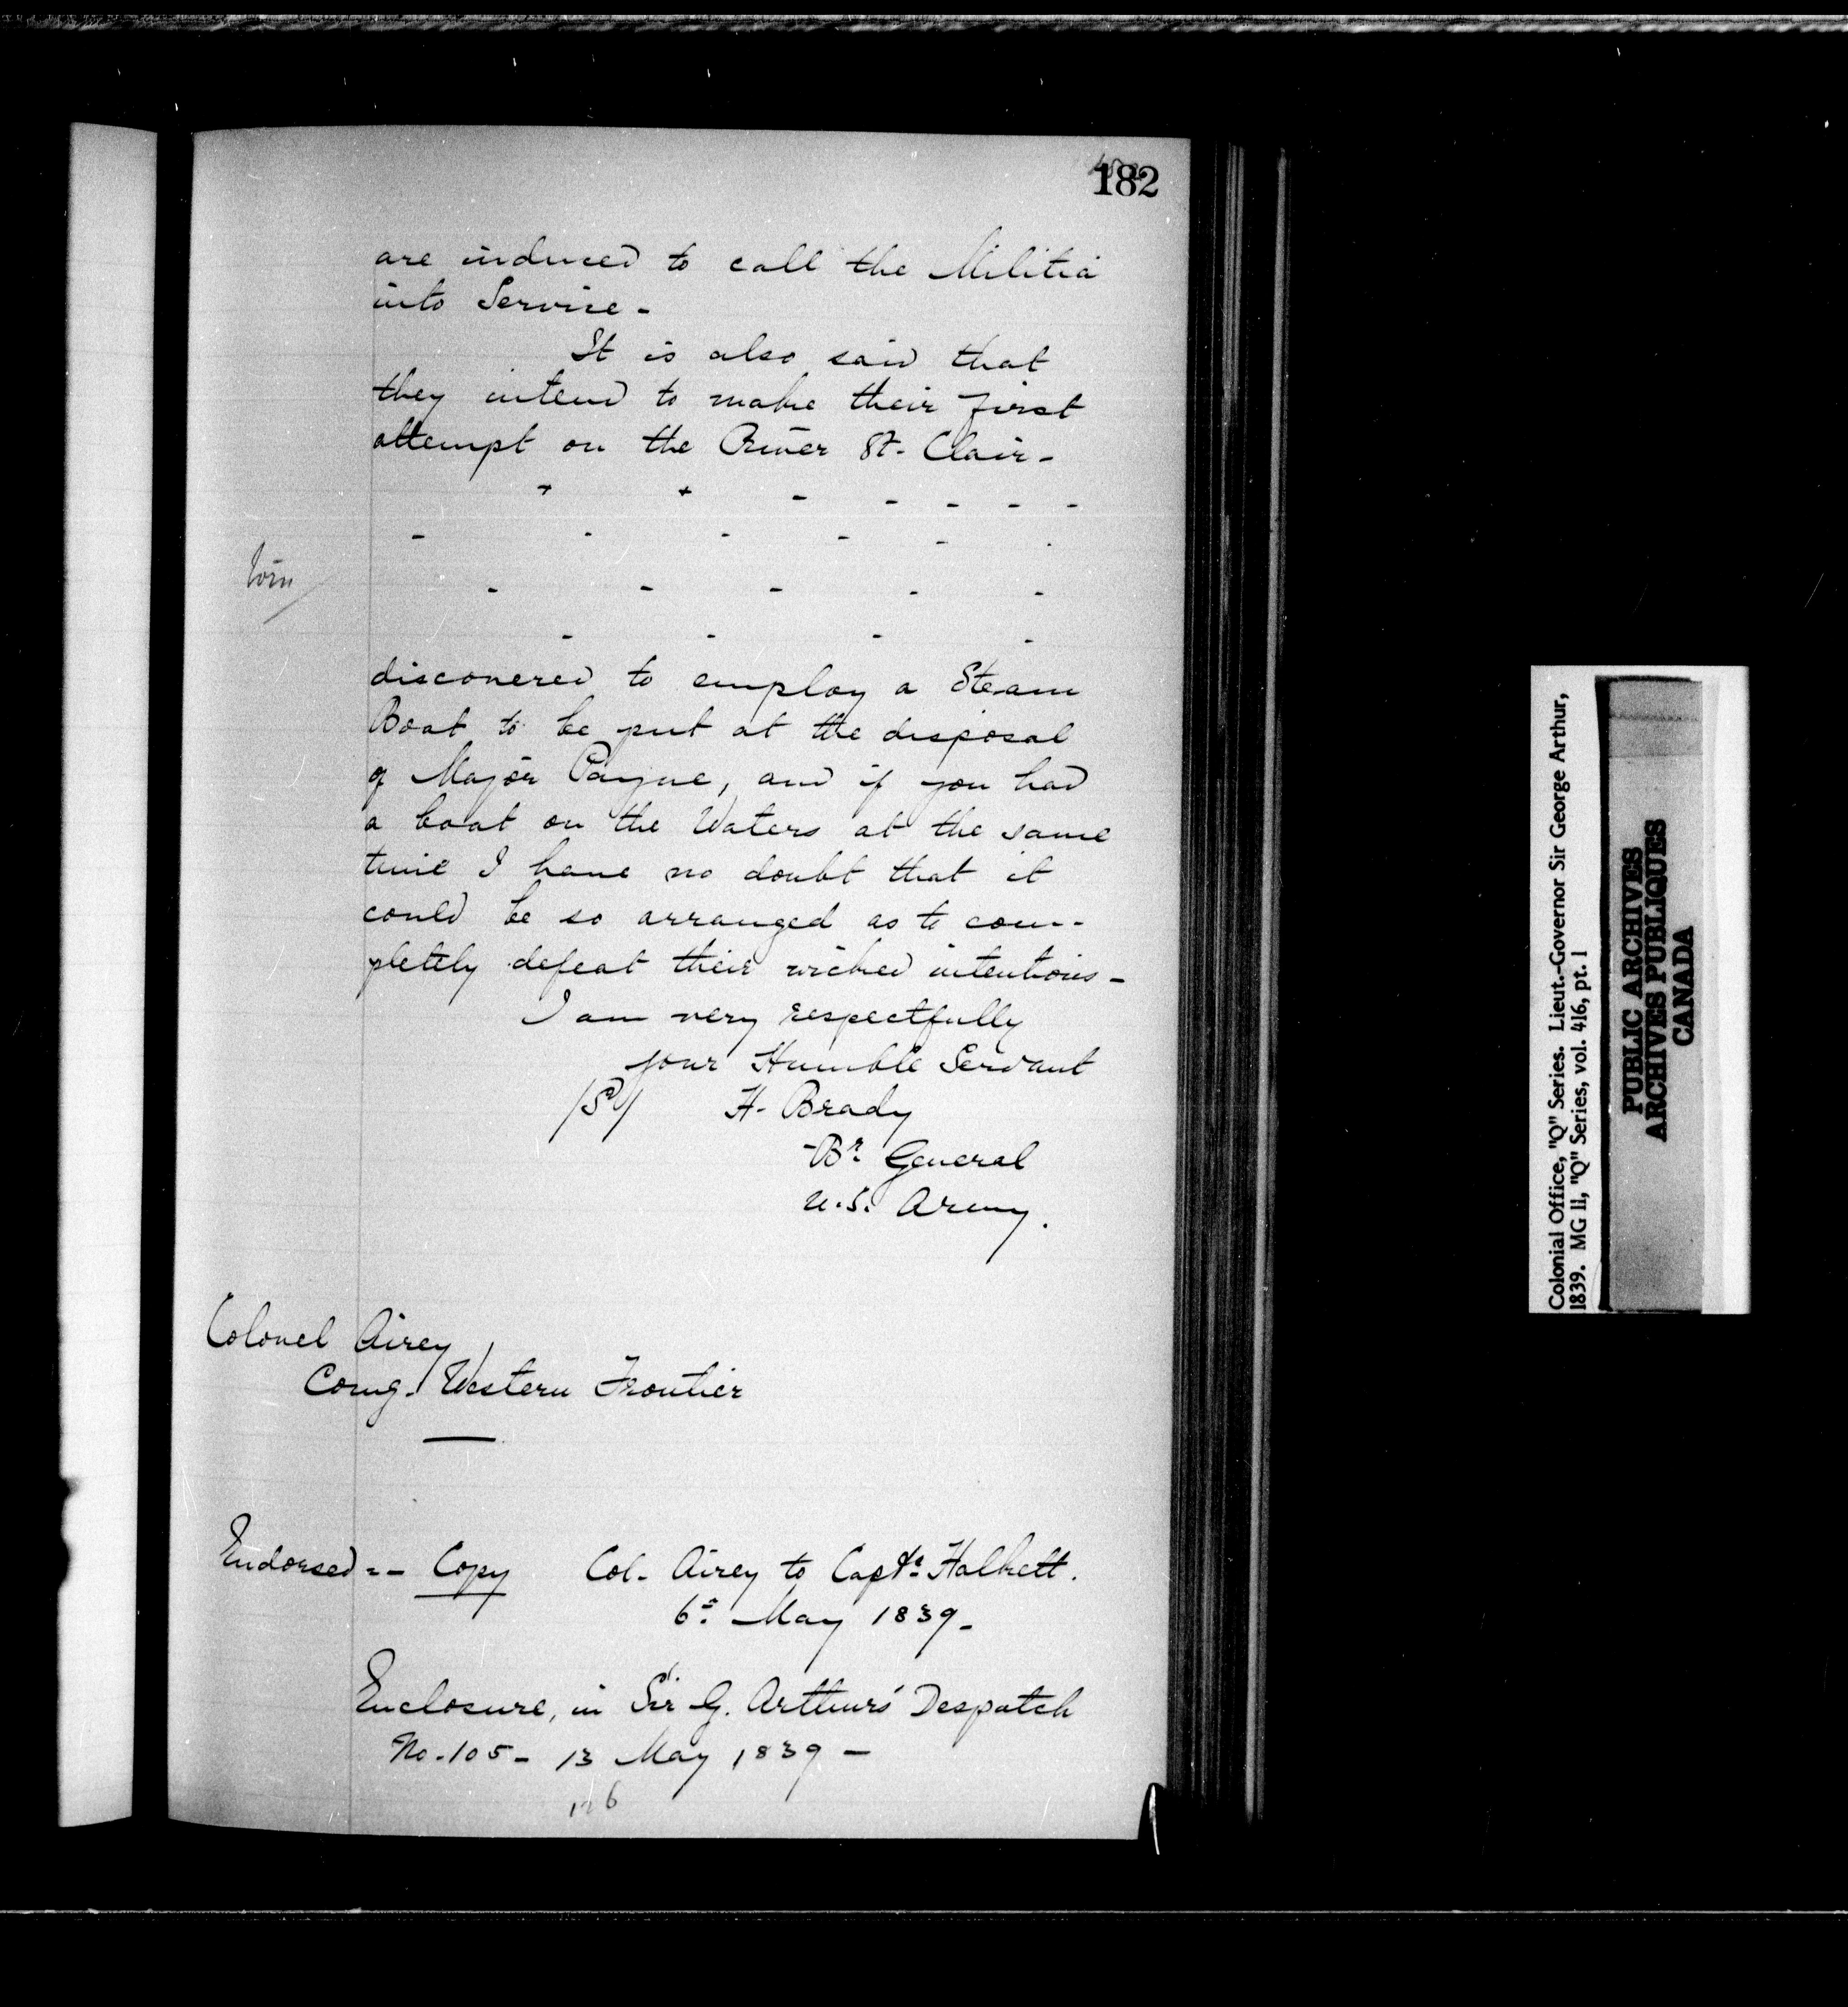 182
are induced to call the Militia
into Service -
It is also said that
they intend to make their first
attempt on the River St. Clair -
+ + - - - - -
- - - - - .
torn
- - - - -
- - - -
discovered to employ a Steam
Boat to be put at the disposal
of Major Payne, and if you had
a boat on the Waters at the same
time I have no doubt that it
could be so arranged as to com-
pletely defeat their wicked intentions -
I am very respectfully
your Humble Servant
/S/ H. Brady
Br General
U.S. Army.
Colonel Airey,
Comg. Western Frontier
Endorsed -- Copy Col. Airey to Captn Halkett.
6th May 1839 -
Enclosure, in Sir G. Arthur's Despatch
No. 105 - 13 May 1839 -
Colonial Office, "Q" Series. Lieut.-Governor Sir George Arthur,
1839. MG 11, "Q" Series, vol. 416, pt. 1
PUBLIC ARCHIVES
ARCHIVES PUBLIQUES
CANADA